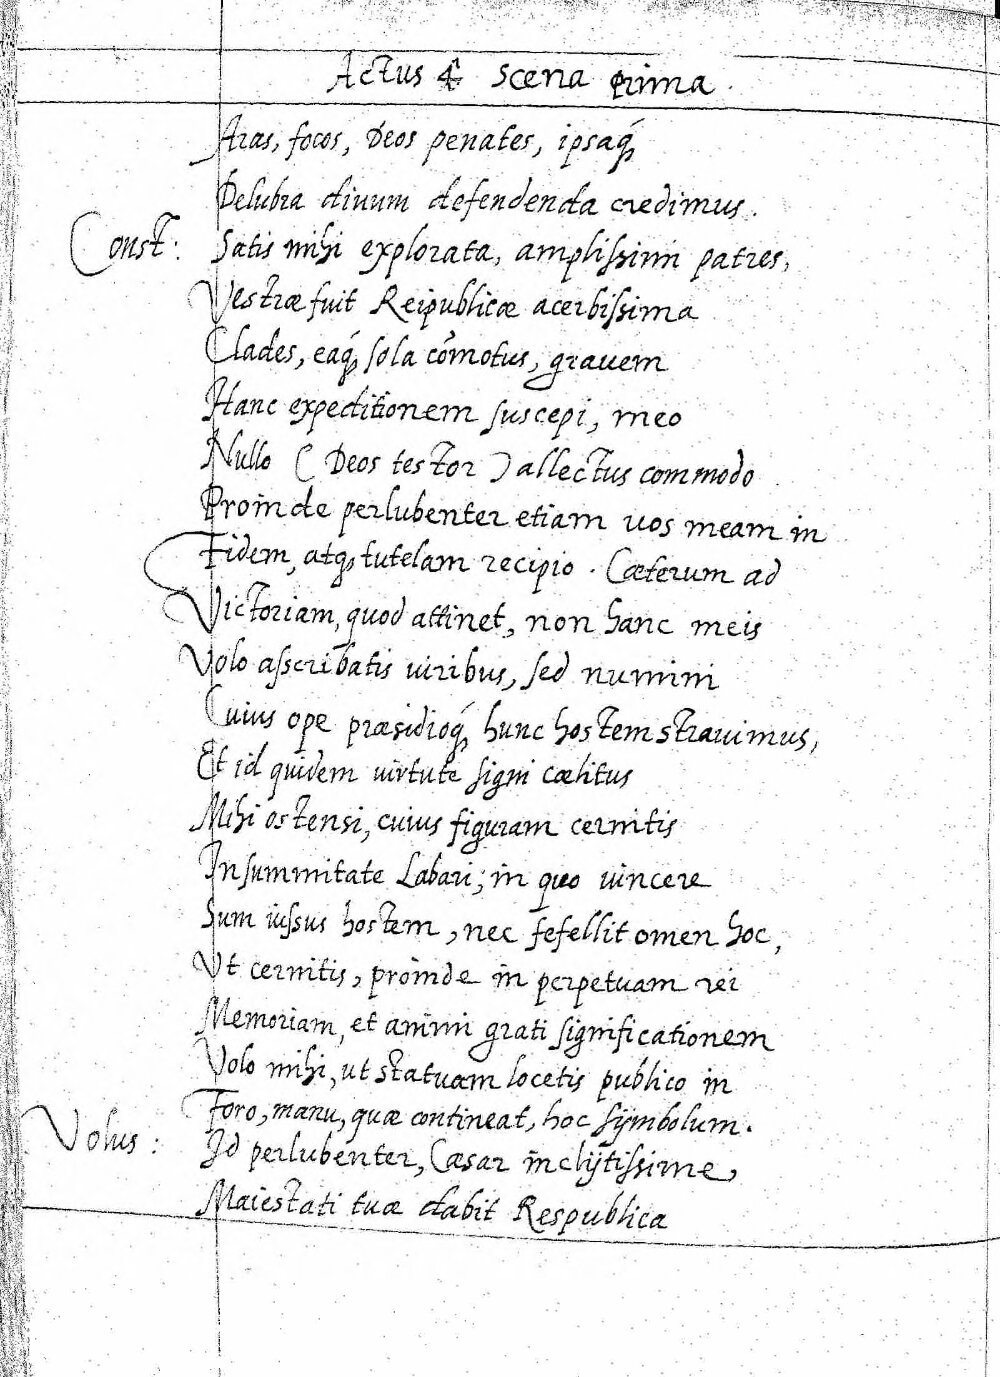 Actus 4^us scena prima.
Aras, focos, Deos penates, ipsaq́;
Delubra divum defendenda credimus.
Const: Satis mihi explorata, amplissimi patres,
Vestræ fuit Reipublicæ acerbissima
Clades, eaq́; sola com̄otus, gravem
Hanc expeditionem suscepi, meo
Nullo (Deos testor) allectus commodo
Proinde perlubenter etiam vos meam in
Fidem, atq; tutelam recipio. Cæterum ad
Victoriam, quod attinet, non hanc meis
Volo asscribatis viribus, sed numini
Cuius ope præsidioq́; hunc hostem stravimus,
Et id quidem virtute signi cælitus
Mihi ostensi, cuius figuram cernitis
In summitate Labari; in quo vincere
Sum iussus hostem, nec fefellit omen hoc,
Vt cernitis, proinde in perpetuam rei
Memoriam, et animi grati significationem
Volo mihi, ut statuam locetis publico in
Foro, manu, quæ contineat, hoc sÿmbolum.
Volus: Id perlubenter, Cæsar inclÿtissime,
Maiestati tuæ dabit Respublica